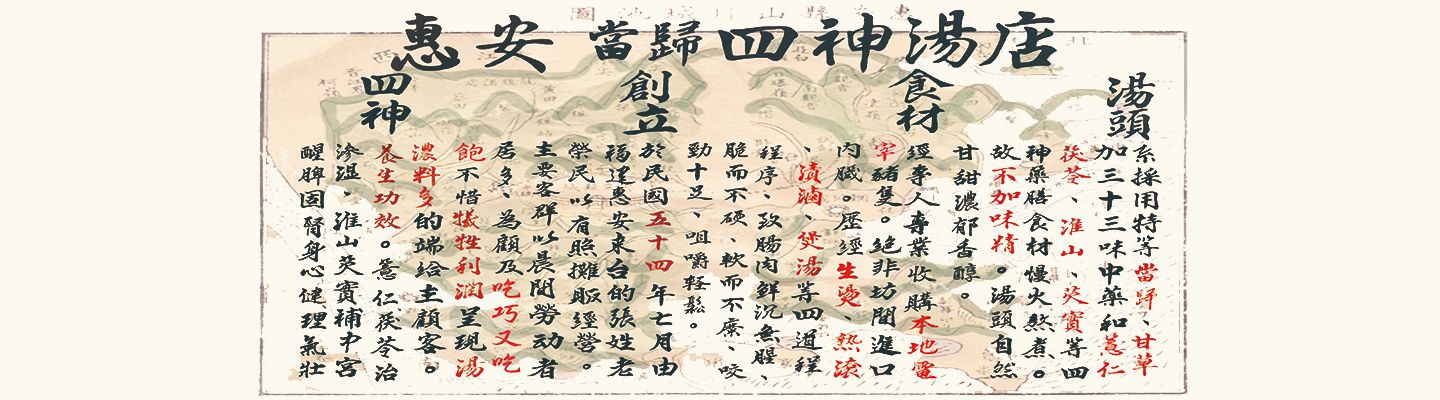 惠安當歸四神湯店
湯頭
系採用特等當歸、甘草
加三十三味中藥和薏仁
茯苓、淮山、芡實等四
神藥膳食材慢火熬煮。
故不加味精。湯頭自然
甘甜濃郁香醇。
食材
經專人專業收購本地電
宰豬隻。絕非坊間進口
內臟。歷經生燙、熱滾
、漬滷、煲湯等四道程
程序、致腸肉鮮沉無腥、
脆而不硬、軟而不糜、咬
勁十足、咀嚼輕鬆。
創立
於民國五十四年七月由
福建惠安來台的張姓老
榮民以有照攤販經營。
主要客群以晨間勞动者
居多、為顧及吃巧又吃
飽不惜犧牲利潤呈現湯
濃料多的端給主顧客。
四神
養生功效。薏仁茯苓治
滲濕、淮山芡實補中宮
醒脾固腎身心健理氣壯